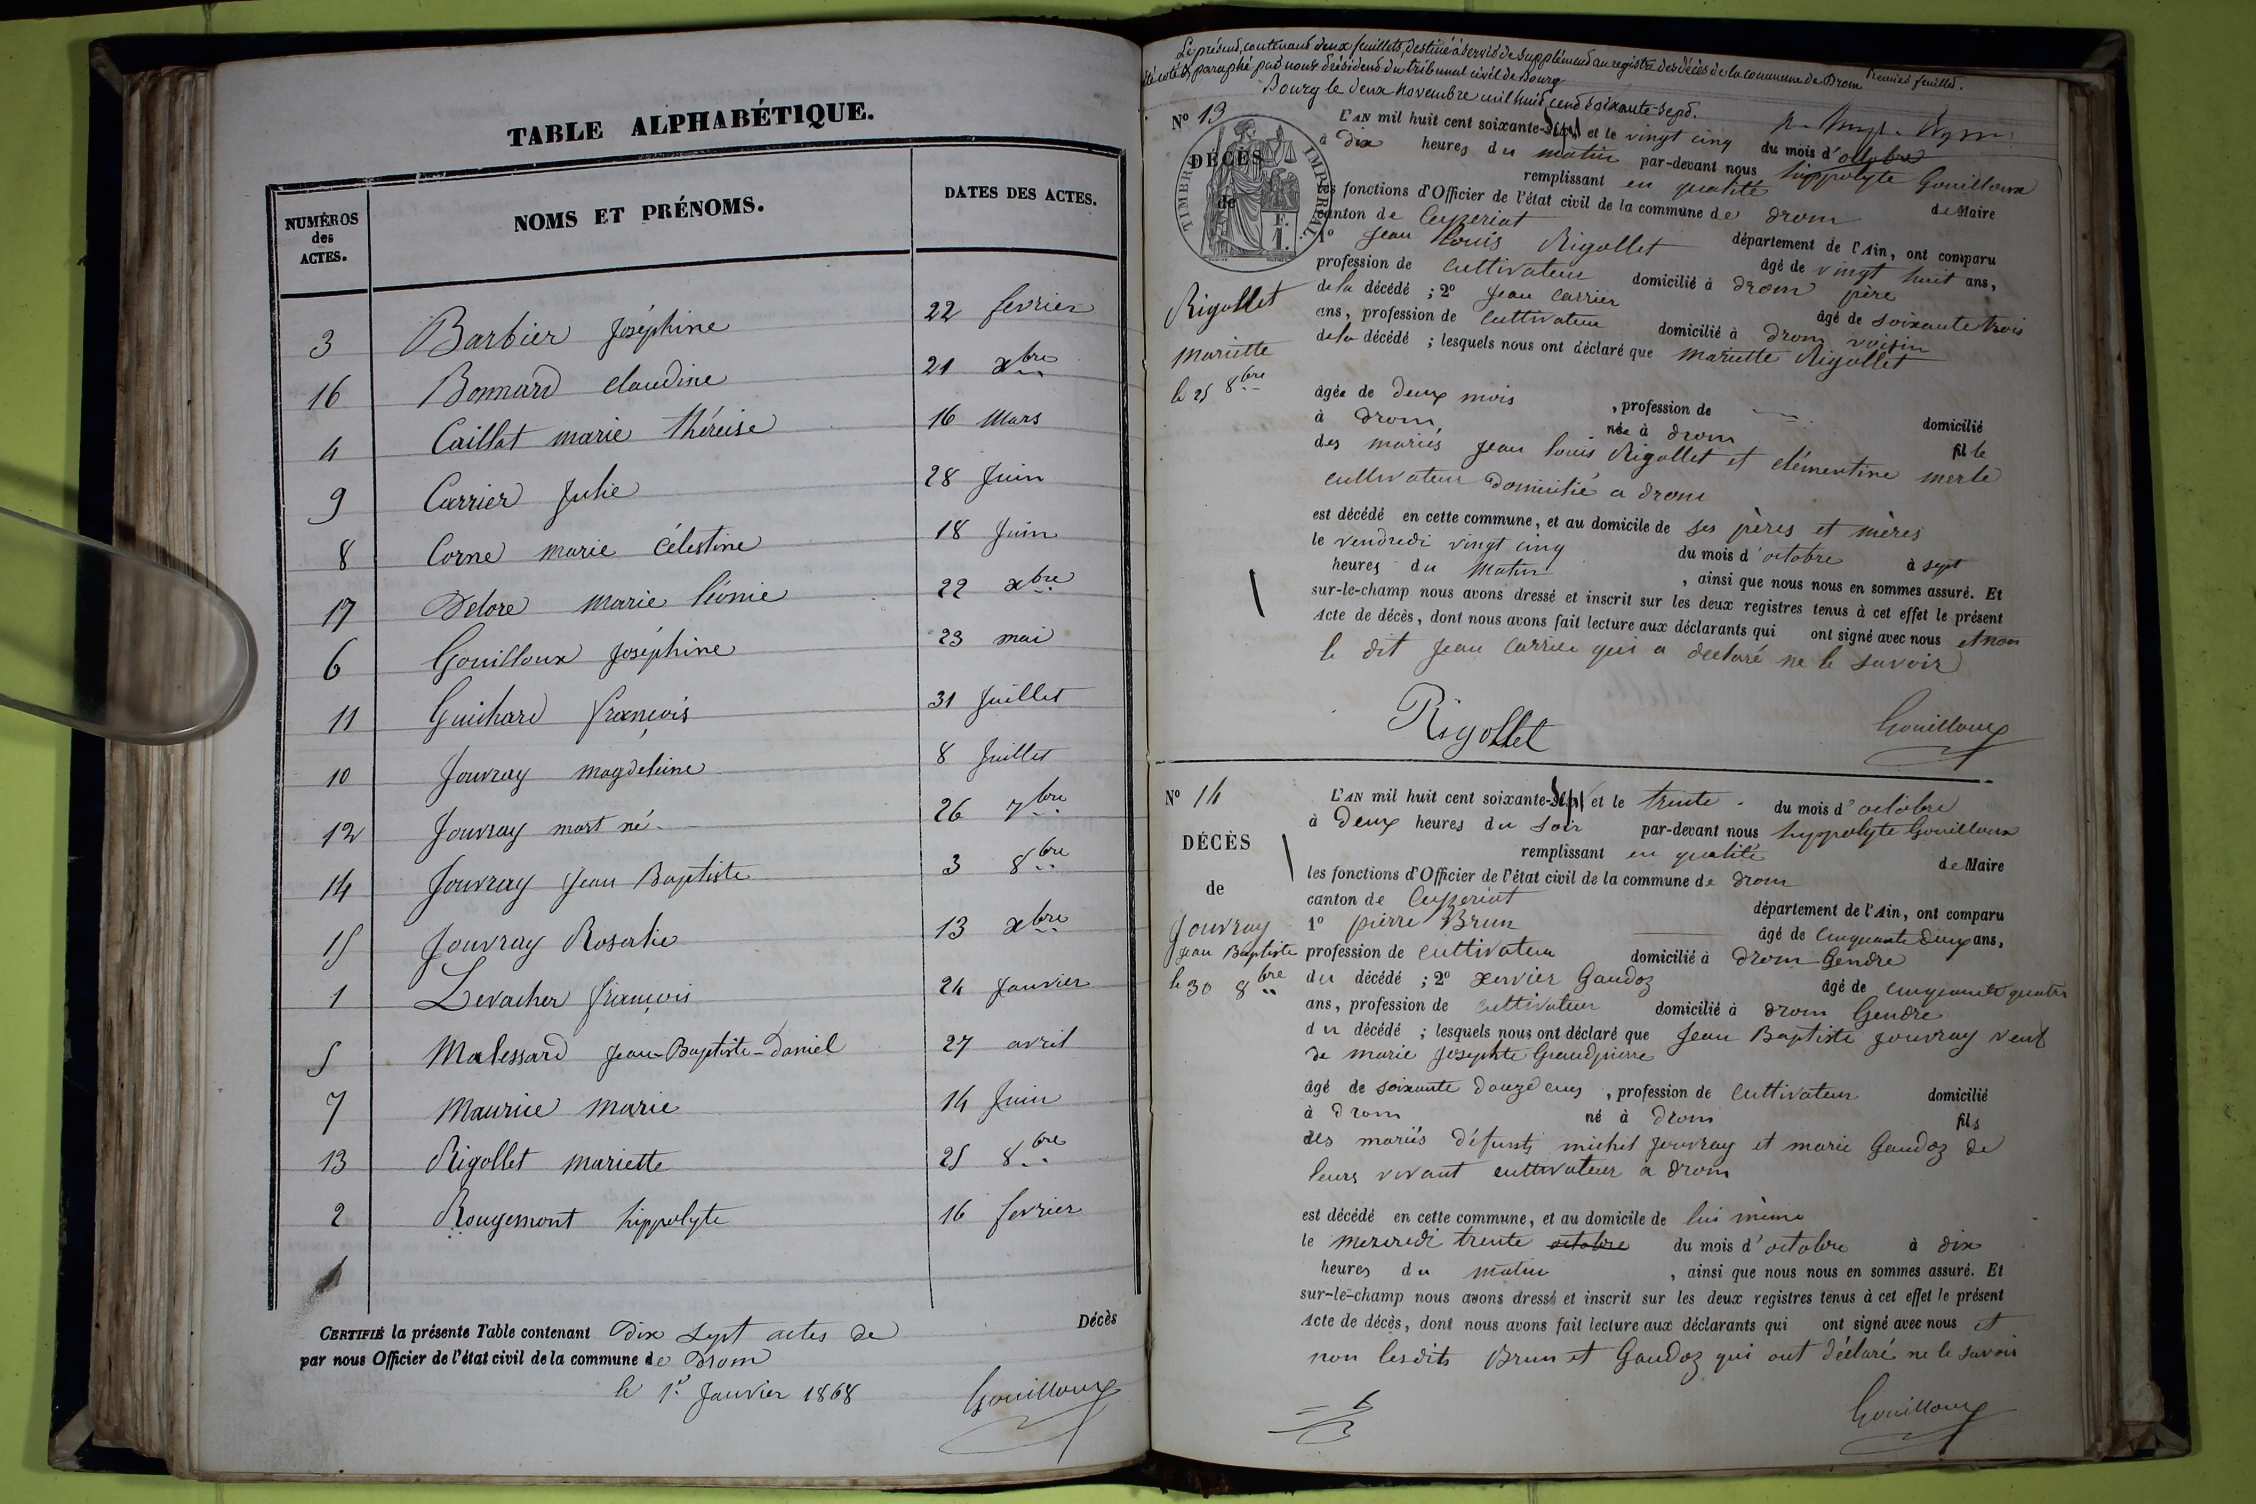 TABLE ALPHABÉTIQUE.
NUMÉROS des ACTES. NOMS ET PRÉNOMS. DATES DES ACTES.
3 Barbier Joséphine 22 fevrier
16 Bonnard claudine 21 xbre
4 Caillat marie théreise 16 Mars
9 Carrier Julie 28 Juin
8 Corne marie Célestine 18 Juin
17 Delore Marie léonie 22 xbre
6 Gouilloux Joséphine 23 mai
11 Guichard françois 31 Juillet
10 Jouvray magdeleine 8 Juillet
12 Jouvray mort né 26 7bre
14 Jouvray Jean Baptiste 3 8bre
15 Jouvray Rosalie 13 xbre
1 Levacher françois 24 Janvier
5 Malessard Jean-Baptiste-Daniel 27 avril
7 Maurice Marie 14 Juin
13 Rigollet mariette 25 8bre
2 Rougemont hippolyte 16 fevrier
CERTIFIÉ la présente Table contenant Dix Sept actes de Décès
par nous Officier de l'état civil de la commune de Drom
le 1er Janvier 1868
Gouilloux
Le présent, contenant deux feuillets, destiné à servir de Supplément au registre des décès de la commune de Drom
été coté & paraphé par nous Président du tribunal civil de Bourg
Premier feuillet.
Bourg le deux Novembre mil huit cent soixante-sept.
N° 13
DÉCÈS
de
TIMBRE IMPÉRIAL
F.
1.
Rigollet
Mariette
le 25 8bre
L'AN mil huit cent soixante-Sept et le vingt cinq du mois d'octobre
à dix heures du matin par-devant nous hippolyte Gouilloux
remplissant en qualité de Maire
les fonctions d'Officier de l'état civil de la commune de Drom
canton de Ceyzeriat département de l'Ain, ont comparu
1° Jean Louis Rigollet âgé de vingt huit ans,
profession de cultivateur domicilié à Drom père
de la décédé ; 2° Jean Carrier âgé de soixante trois
ans, profession de cultivateur domicilié à Drom voisin
de la décédé ; lesquels nous ont déclaré que Mariette Rigollet
âgée de Deux mois , profession de domicilié
à Drom, née à Drom fille
des mariés Jean Louis Rigollet et clémentine merle
cultivateur Domicilié a Drom
est décédé en cette commune, et au domicile de ses pères et mères
le vendredi vingt cinq du mois d'octobre à sept
heures du Matin , ainsi que nous nous en sommes assuré. Et
sur-le-champ nous avons dressé et inscrit sur les deux registres tenus à cet effet le présent
Acte de décès, dont nous avons fait lecture aux déclarants qui ont signé avec nous et non
le dit Jean Carrier qui a declaré ne le savoir
Rigollet Gouilloux
N° 14
DÉCÈS
de
Jouvray
Jean Baptiste
le 30 8bre
L'AN mil huit cent soixante-Sept et le trente du mois d'octobre
à Deux heures du Soir par-devant nous hyppolyte Gouilloux
remplissant en qualité de Maire
les fonctions d'Officier de l'état civil de la commune de Drom
canton de Ceyzeriat département de l'Ain, ont comparu
1° pierre Brun âgé de Cinquante Deux ans,
profession de cultivateur domicilié à Drom Gendre
du décédé ; 2° xervier Gaudoz âgé de cinquante quatre
ans, profession de cultivateur domicilié à Drom Gendre
du décédé ; lesquels nous ont déclaré que Jean Baptiste Jouvray veuf
de marie Josephte Grandpierre
âgé de soixante Douze ans , profession de cultivateur domicilié
à Drom né à Drom fils
des mariés défunts michel Jouvray et marie Gaudoz de
leurs vivant cultivateur a Drom
est décédé en cette commune, et au domicile de lui même
le Mercredi trente octobre du mois d'octobre à dix
heures du matin , ainsi que nous nous en sommes assuré. Et
sur-le-champ nous avons dressé et inscrit sur les deux registres tenus à cet effet le présent
Acte de décès, dont nous avons fait lecture aux déclarants qui ont signé avec nous et
non lesdits Brun et Gaudoz qui ont déclaré ne le savoir
Gouilloux